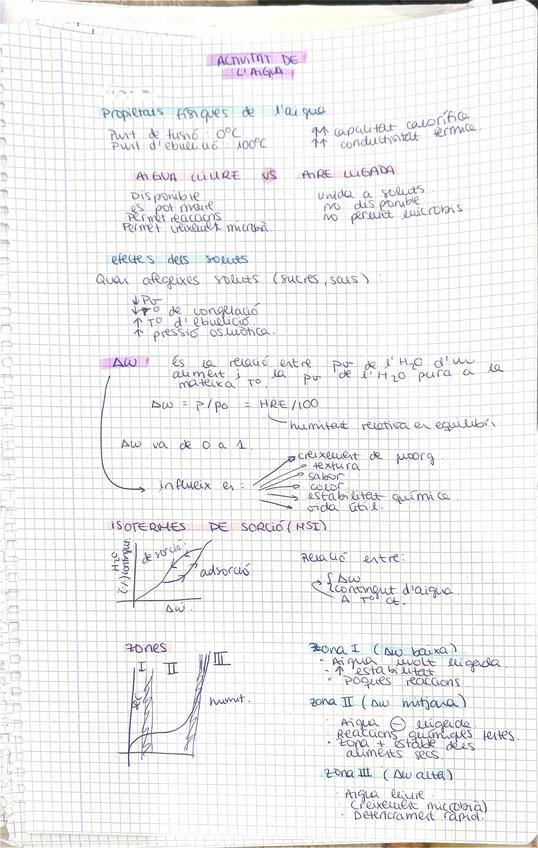 ACTIVITAT DE
L'AIGUA
Propietats físiques de l'aigua
Punt de fusió : 0ºC
Punt d'ebulició : 100ºC
↑↑ capacitat calorífica
↑↑ conductivitat tèrmica.
AIGUA LLIURE VS AIRE LLIGADA
Disponible
es pot moure
Permet reaccions
Permet creixement microbià.
unida a soluts
no disponible
no permet microbis
efectes dels soluts
Quan afegeixes soluts (sucres, sals) :
↓ Pv
↓ Tº de congelació
↑ Tº d'ebulició
↑ pressió osmòtica.
Aw és la relació entre pv de l'H2O d'un
aliment i la pv de l'H2O pura a la
mateixa Tº.
Aw = P/Po = HRE/100
humitat relativa en equilibri
Aw va de 0 a 1.
influeix en :
creixement de μoorg.
textura
sabor
color
estabilitat química.
vida útil.
ISOTERMES DE SORCIÓ (MSI)
H2O
(%) contingut
desorció
adsorció
Aw
Relació entre:
Aw
contingut d'aigua
A Tº ct.
ZONES
I II III
sec
humit.
Zona I (Aw baixa)
· Aigua molt lligada.
· ↑ estabilitat
· Poques reaccions
Zona II (Aw mitjana)
· Aigua ⊖ lligada.
· Reaccions químiques lentes.
· Zona + estable dels
aliments secs.
Zona III (Aw alta)
· Aigua lliure.
· Creixement microbià)
· Deteriorament ràpid.